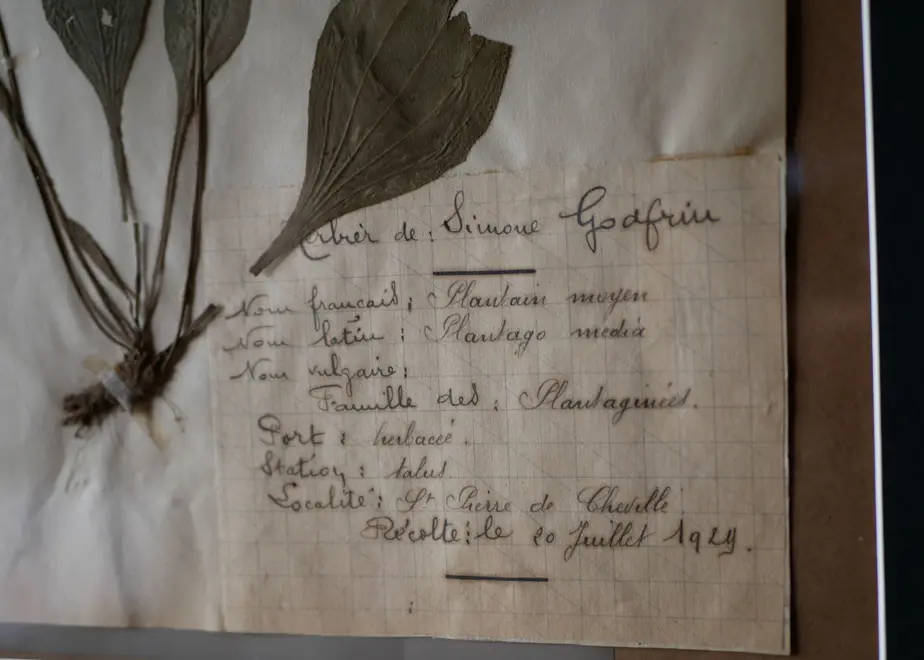 Herbier de : Simone Godfrin
Nom français : Plantain moyen
Nom latin : Plantago media
Nom vulgaire :
Famille des : Plantaginées.
Port : herbacé.
Station : talus.
Localité : St Pierre de Chevillé
Récolte : le 20 Juillet 1929.